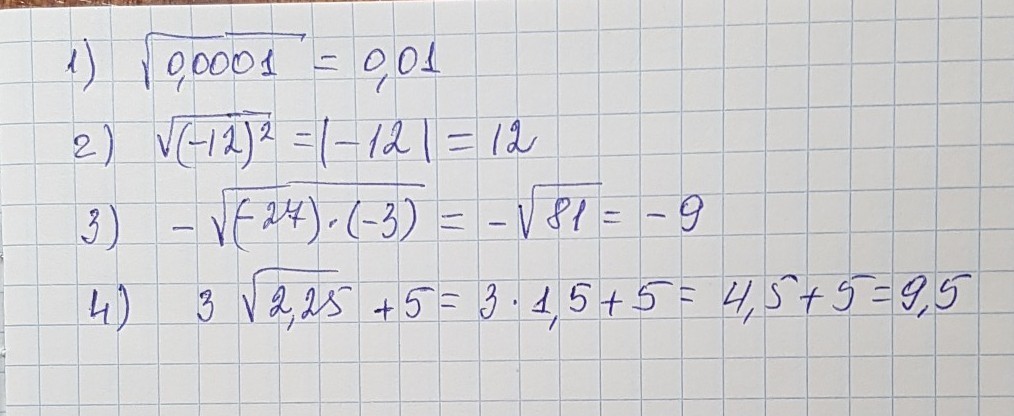 1) √0,0001 = 0,01
2) √(-12)² = |-12| = 12
3) -√(-27)·(-3) = -√81 = -9
4) 3√2,25 + 5 = 3·1,5 + 5 = 4,5 + 5 = 9,5